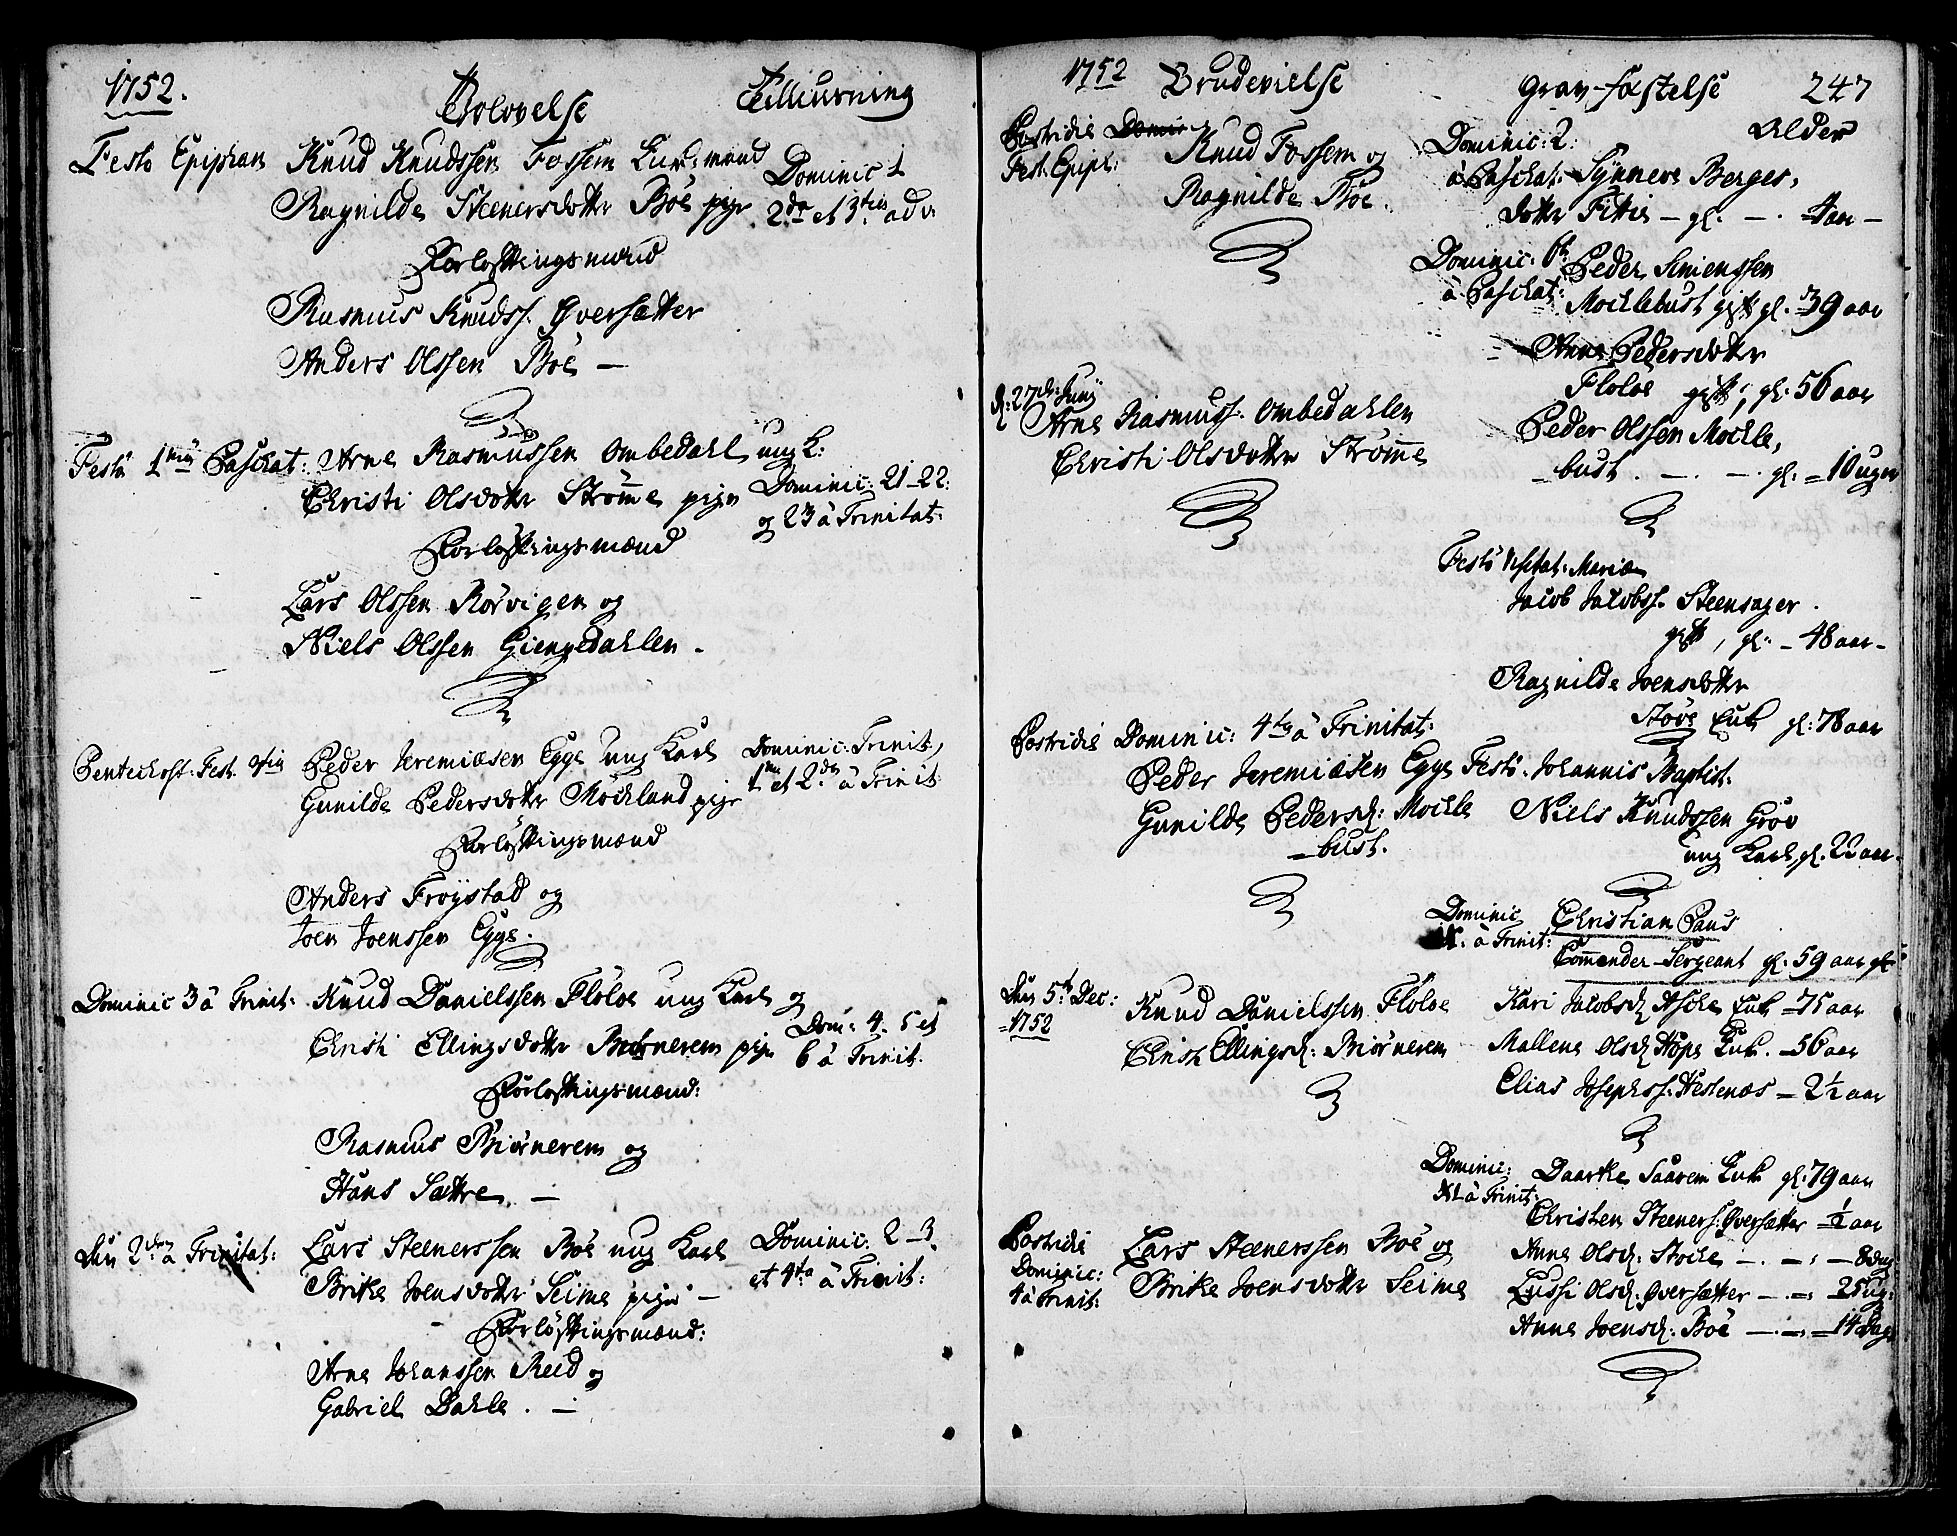 1752.
Trolovelse
Tillÿsning
Festo Epiphan
Knud Knudssen Fossem Enk-mand
Ragnilde Steenersdotter Böe pige
Dominic 1
2da et 3tia adv:
Forlofftingsmænd
Rasmus Knudss. Øversætter
Anders Olssen Böe —
Festo 1mi Paschat:
Arne Rasmussen Ombedahl, ung K:
Christi Olsdotter Strömme pige
Dominic: 21-22:
og 23 à Trinitat:
Forlofftingsmænd
Lars Olssen Rörvigen og
Niels Olssen Giengedahlen -
Pentechost: Fest. 3tia
Peder Jeremiæsen Egge ung Karl
Gunilde Pedersdotter Mochland pige
Dominic: Trinit,
1ma et 2da à Trinit
Forlofftingsmænd
Anders Fröystad og
Joen Joenssen Egge.
Dominic 3 à Trinit:
Knud Danielssen Floloe ung Karl og
Christi Ellingsdotter Biörnerem pige
Dom: 4. 5 et
6 à Trinit.
Forlofftingsmænd:
Rasmus Biörnerem og
Hans Sættre. —
Den 2den à Trinitat:
Lars Steenerssen Böe ung Karl
Brithe Joensdotter Seime pige —
Dominic: 2-3.
et 4ta à Trinit:
Forlöfftingsmænd:
Arne Johanssen Reed og
Gabriel Dahle. —
1752
Brudevielse
Postridie
Fest. Epiph:
Knud Fossem og
Ragnilde Böe.
d: 27de Junÿ
Arne Rasmuss. Ombedahlen
Christi Olsdotter Strömme
Postridie Dominic: 4ta à Trinitat:
Peder Jeremiæsen Egge
Gunilde Pedersd: Mochle
-bust.
Den 5te Dec:
-1752
Knud Danielssen Floloe
Christi Ellingsd: Biörnerem
Postridie
Dominic:
4 à Trinit:
Lars Steenerssen Böe og
Brithe Joensdotter Seime
Grav-fæstelse
247
Alder
Dominic: 2.
à Paschat: Synneve Berges,
dotter Fitie — gl. — . 4 aar —
Dominic: 6ta
à Paschat:
Peder Simenssen
Mochlebust gift gl. 39 aar
Anne Pedersdotter
Floloe gift, gl. 56 aar
Peder Olssen Mochle,
-bust . — . — . gl: = 10 uger
Festo Visitat: Mariæ
Jacob Jacobss. Steensager.
gift, gl: - 48 aar -
Ragnilde Joensdotter
Störe Enk gl: 78 aar
Festo Johannis Baptist:
Niels Knudssen Gröv
ung Karl, gl. 22 aar.
Dominic
à Trinit:
Christian Paus
Commender-Sergeant gl. 59 aar
Kari Jacobsd Aske Enk - 75 aar
Mallene Olsd Hope Enk. - 56 aar
Elias Josephss: Hestenæs - 2½ aar
Dominic:
XI à Trinit:
Daarthe Saarem Enk gl: 79 aar
Christen Steeners: Øversætter - ½ aar
Anne Olsd: Stoche — . — : — 8 dag
Lussi Olsd: Øversætter — . — : 25 ug:
Anne Joensd: Böe — . — : = 14 dage